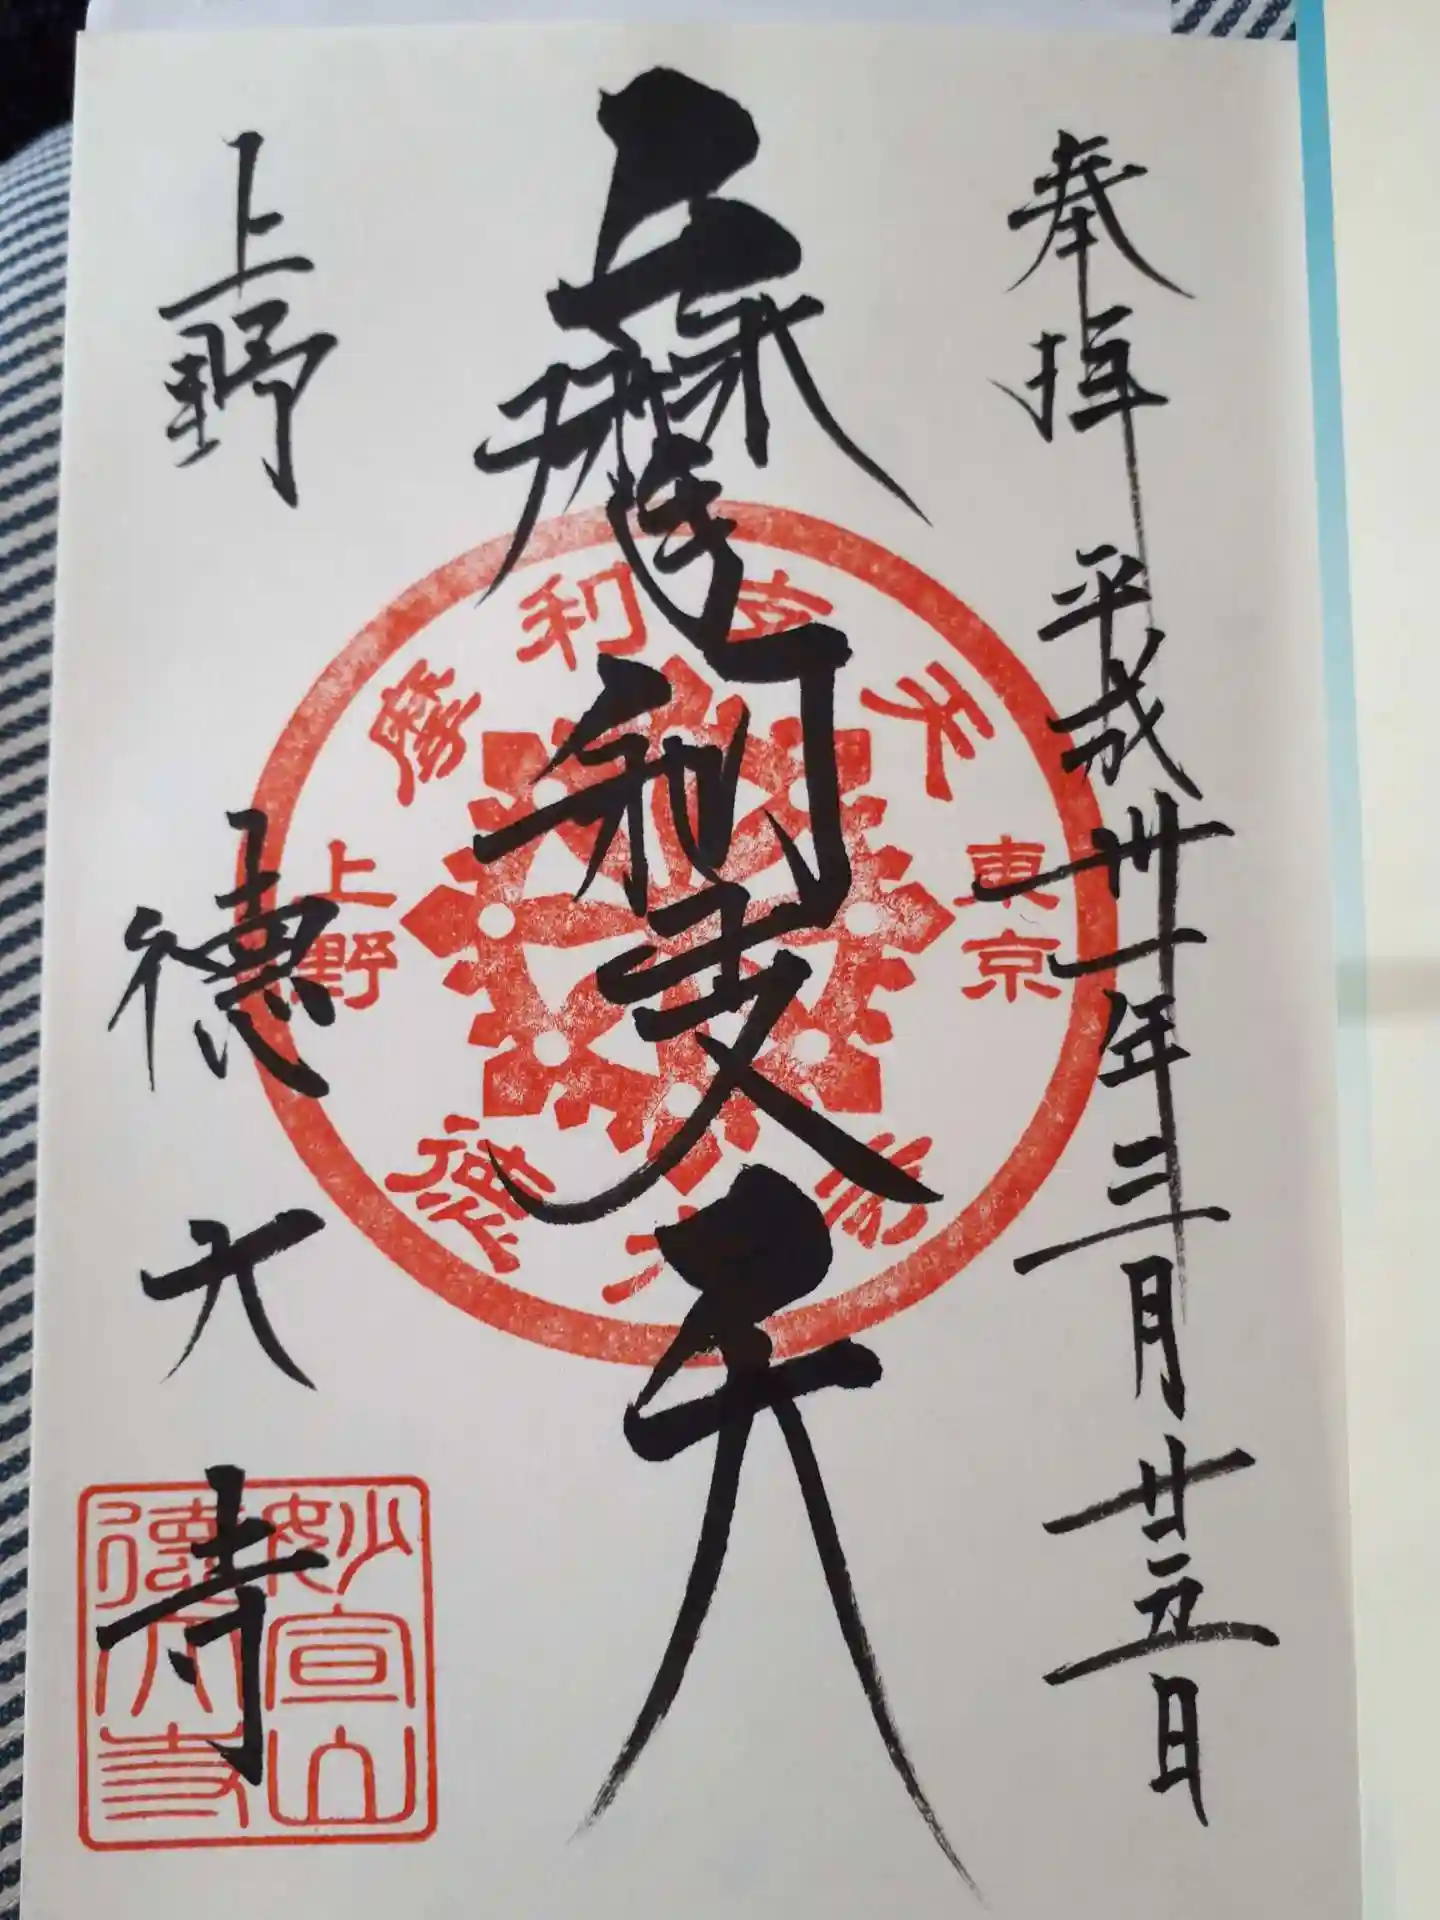 奉拝 平成卅一年三月廿五日
摩利支天
上野 徳大寺
摩利支天
東京
上野
徳大寺
妙宣山
徳大寺